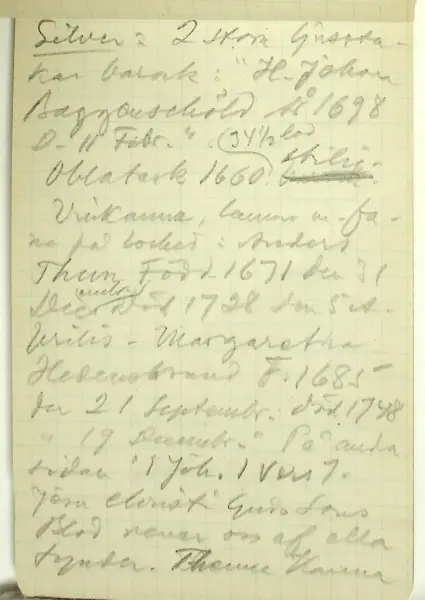 Silver: 2 stora ljussta-
kar barock: "H. Johan
Baggenschöld År 1698
D. 11 Febr." (34 1/2 lod
Oblatask 1660.
Vinkanna, lamm m. fa-
na på locket: Anders
Thun Född 1671 den 31
Decembr Död 1728 den 5 A-
prilis - Margaretha
Hedensbrand F. 1685
den 21 Septembr. död 1748
" 19 Decembr." På andra
sidan 1 Joh. 1 Vers 7.
Jesu Christi Guds Sons
Blod renar oss af alla
synder. Thenne Kanna